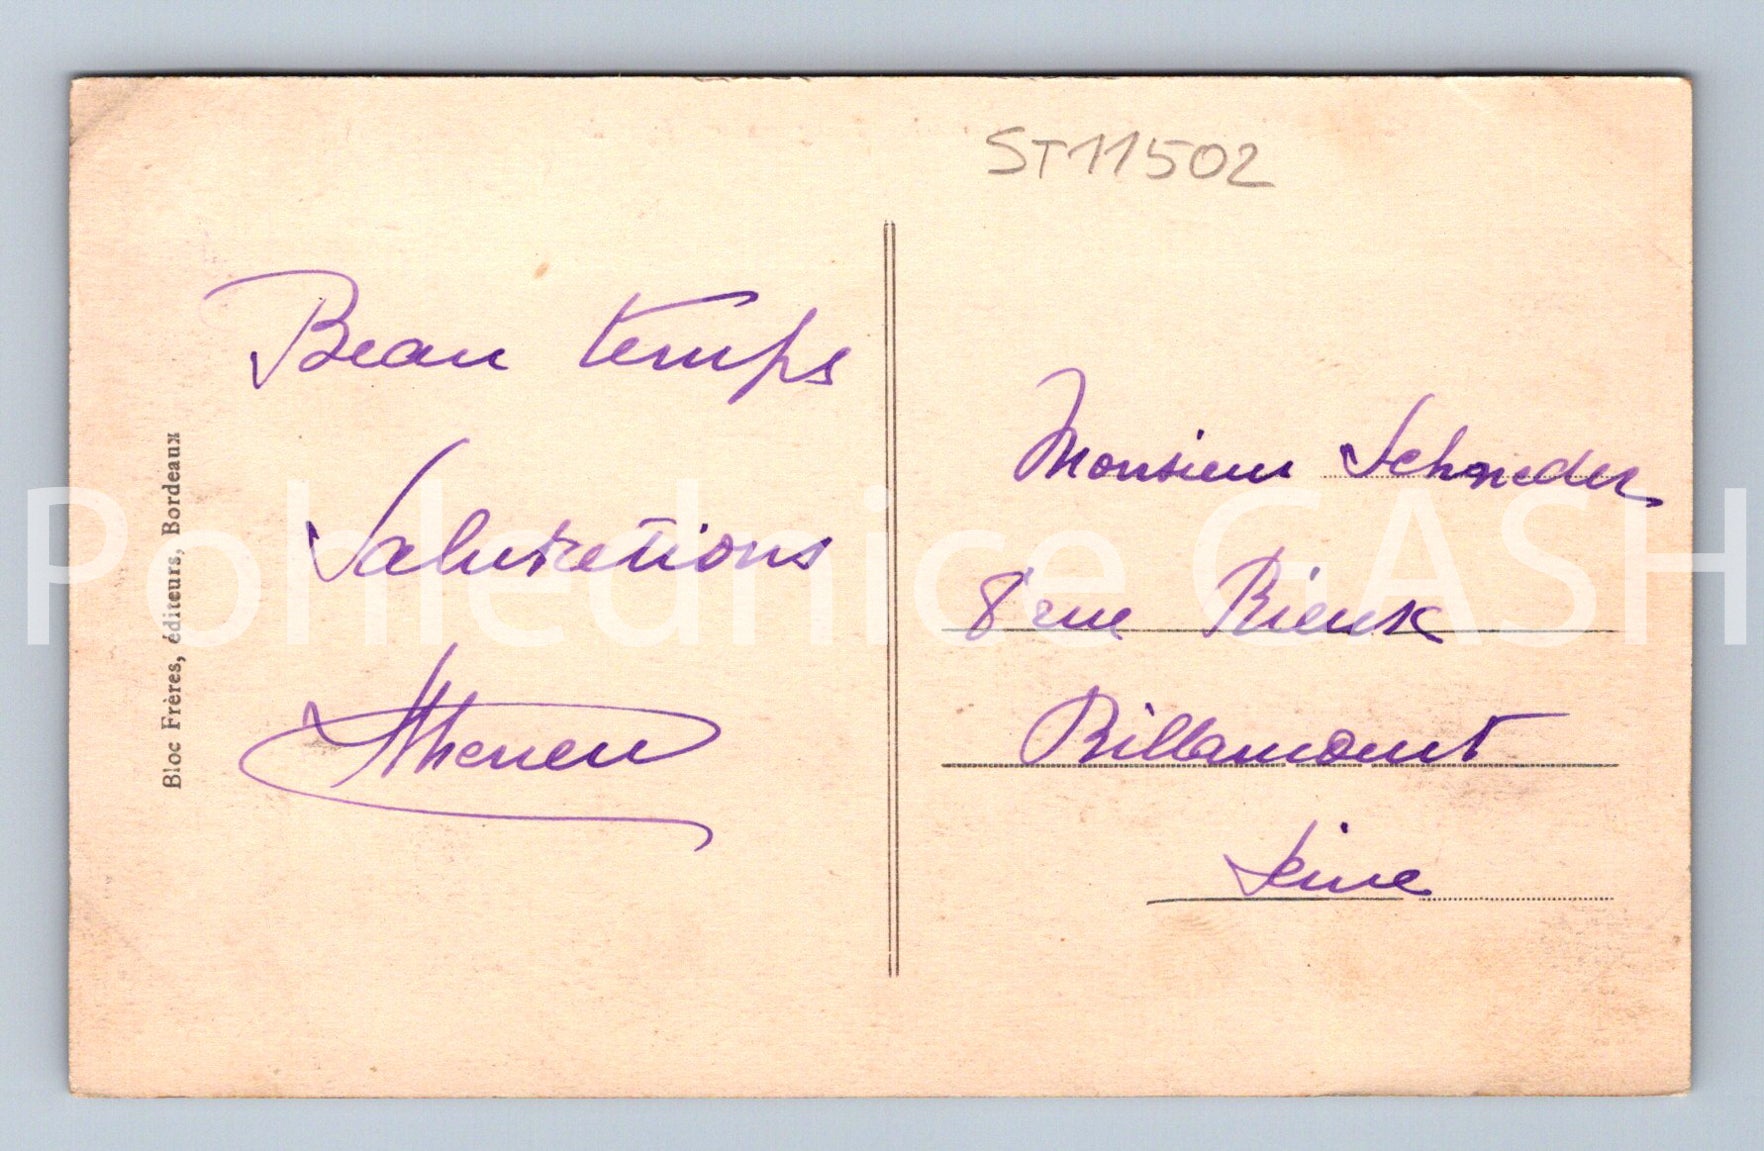 ST11502
Beau temps
Salutations
Bloc Frères, éditeurs, Bordeaux
Monsieur Schneder
8 rue Rieux
Billamont
Seine
Pohlednice GASH